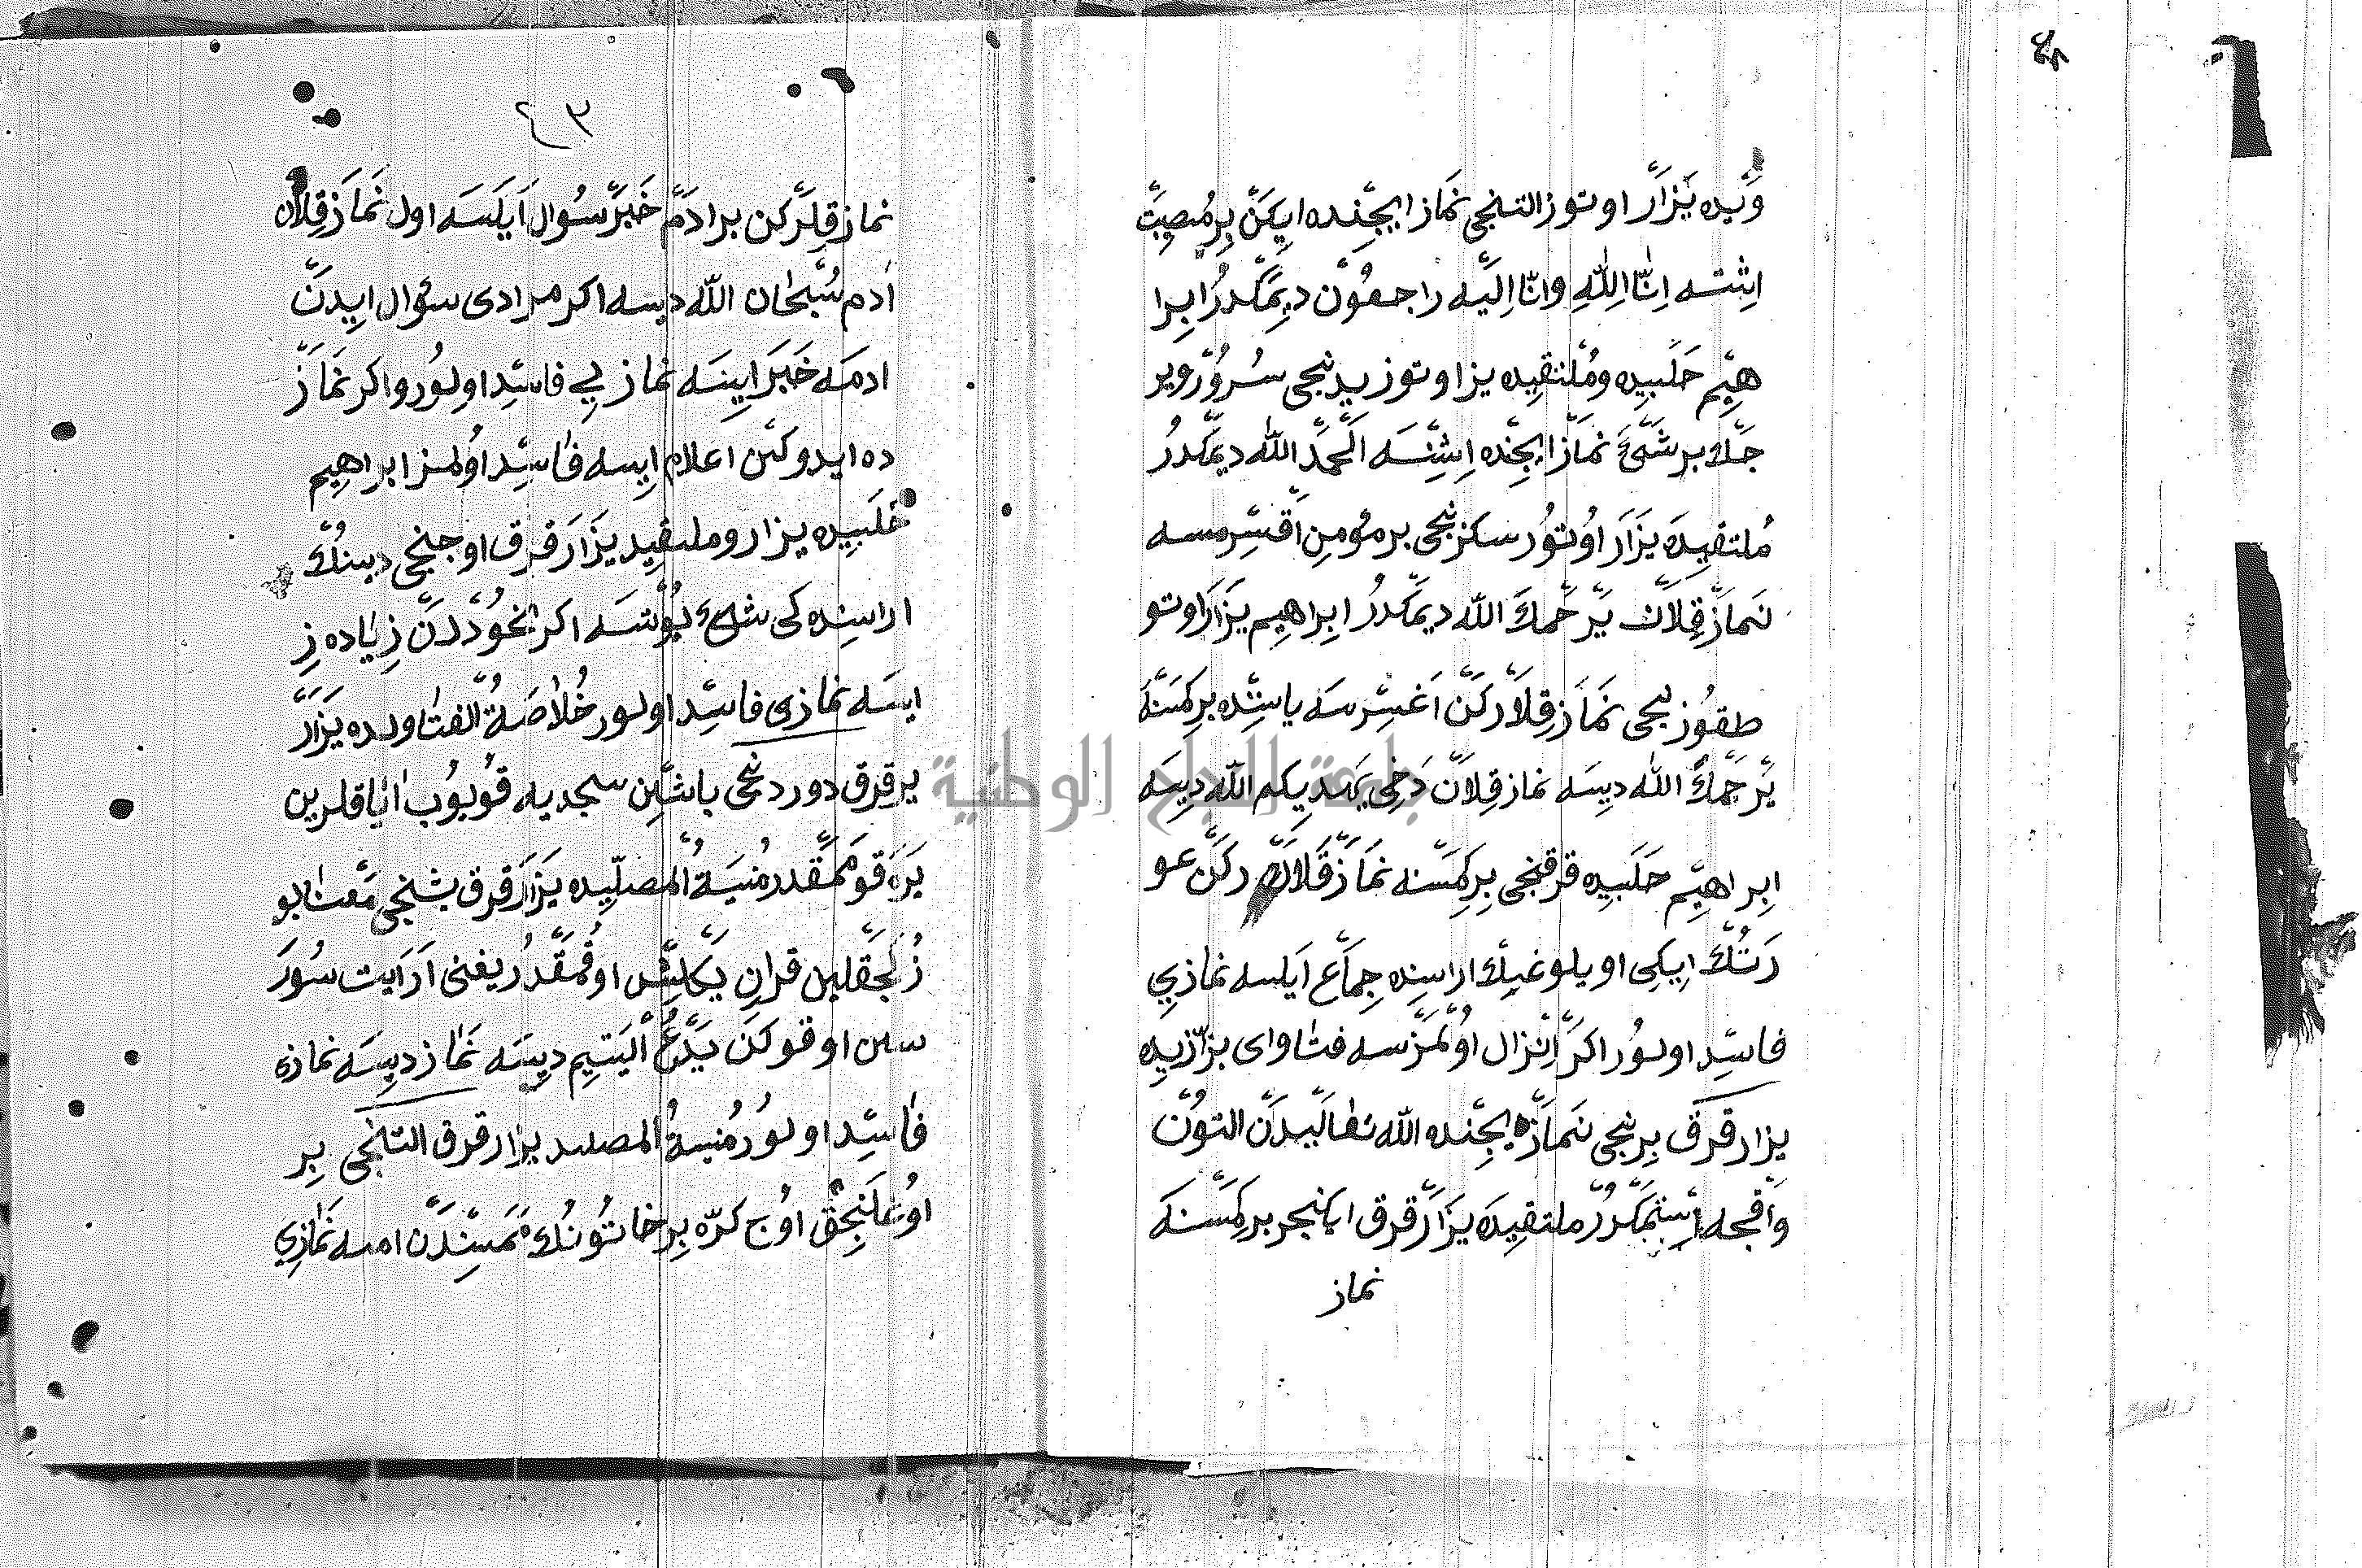 وَيده يَزَار اوتوز التنجى نماز ايچنده ايكن بر مُصيبت
اِشتسه اِنّا لِلّٰهِ وانّا اِليه راجعون ديمكدرُ ابرا
هيم حَلبيده ومُلتقيده يزار اوتوز يدنجى سُرُوُر وير
جك بر شَىْ نماز ايچنده اِشِتسَه الحمد الله ديمكدرُ
مُلتقيدَه يَزَارَ اوُتوُر سكزنجى بر مؤمِن اَقسِرمسه
نَماز قِلاَن يَرحَمكَ الله ديمكدرُ ابراهيم يَزَارَ اوتو
طقوُزنجى نماز قِلاَركَن اَغسِرسَه ياشِنده بركمَسَنه
يَرحَمُكَ الله ديسَه نماز قِلاَن دَخِى يَهديكم الله ديسَه
ابراهيم حَلَبيده قرقنجى بركِمَسَنه نَماز قَلاَركَن عو
رَتُنك ايكِى اويلوغينك اراسنده جِماَع اَيلسه نمازيِ
فاسِد اولوُر اكر اِنزال اوُلمَزسه فتاواى بزّازيده
يزار قرق برنجى نَمازه ايچنده الله تعَالَيدَن التوُن
وَاقچه اِستمكدرُ ملتقيدَه يَزَار قرق ايكنجر بركمَسَنه
نماز
٤٣
نماز قِلَركن بر ادَم خَبر سُوال اَيلَسَه اول نَماز قِلان
اَدم سُبحَان الله ديسه اكر مرادى سئوال ايدَن
ادمَه خَبَر ايسَه نماز يى فاسِد اولوُر واكر نَمَاز
ده ايدوكن اعلام ايسه فَاسِد اوُلمز ابراهيم
حَلَبيده يزار وملتقيد يَزَار قرق اوچنجى دينُك
اراسنده كى شئ يوُتسَه اكر نخُوددن زيَاده زِ
ايسَه نمازى فاسِد اولور خُلاصَةُ الفتاولده يَزَار
ير قرق دوردنجى باشِن سجديه قوُيوُب اَيَاقلرين
يَره قومَمقدر مُنيَةُ المصلّيده يَزَار قرق بشنجى مَعنَا بو
زُلجقلين قران يكلِش اوقُمقدُر يعنى اَرَايت سُورَ
سين اوقوكَن يَدُعُّ الْيَتيم ديسَه نَماز ديسَه نمازى
فاسِد اولوُر مُنيةُ المصليد يزار قرق التنجى بِر
اوُغلَنجق اوُچ كرّه بِر خاتوُنُك مَمَسِندن امسه نَمازيِ
جامعة النجاح الوطنية